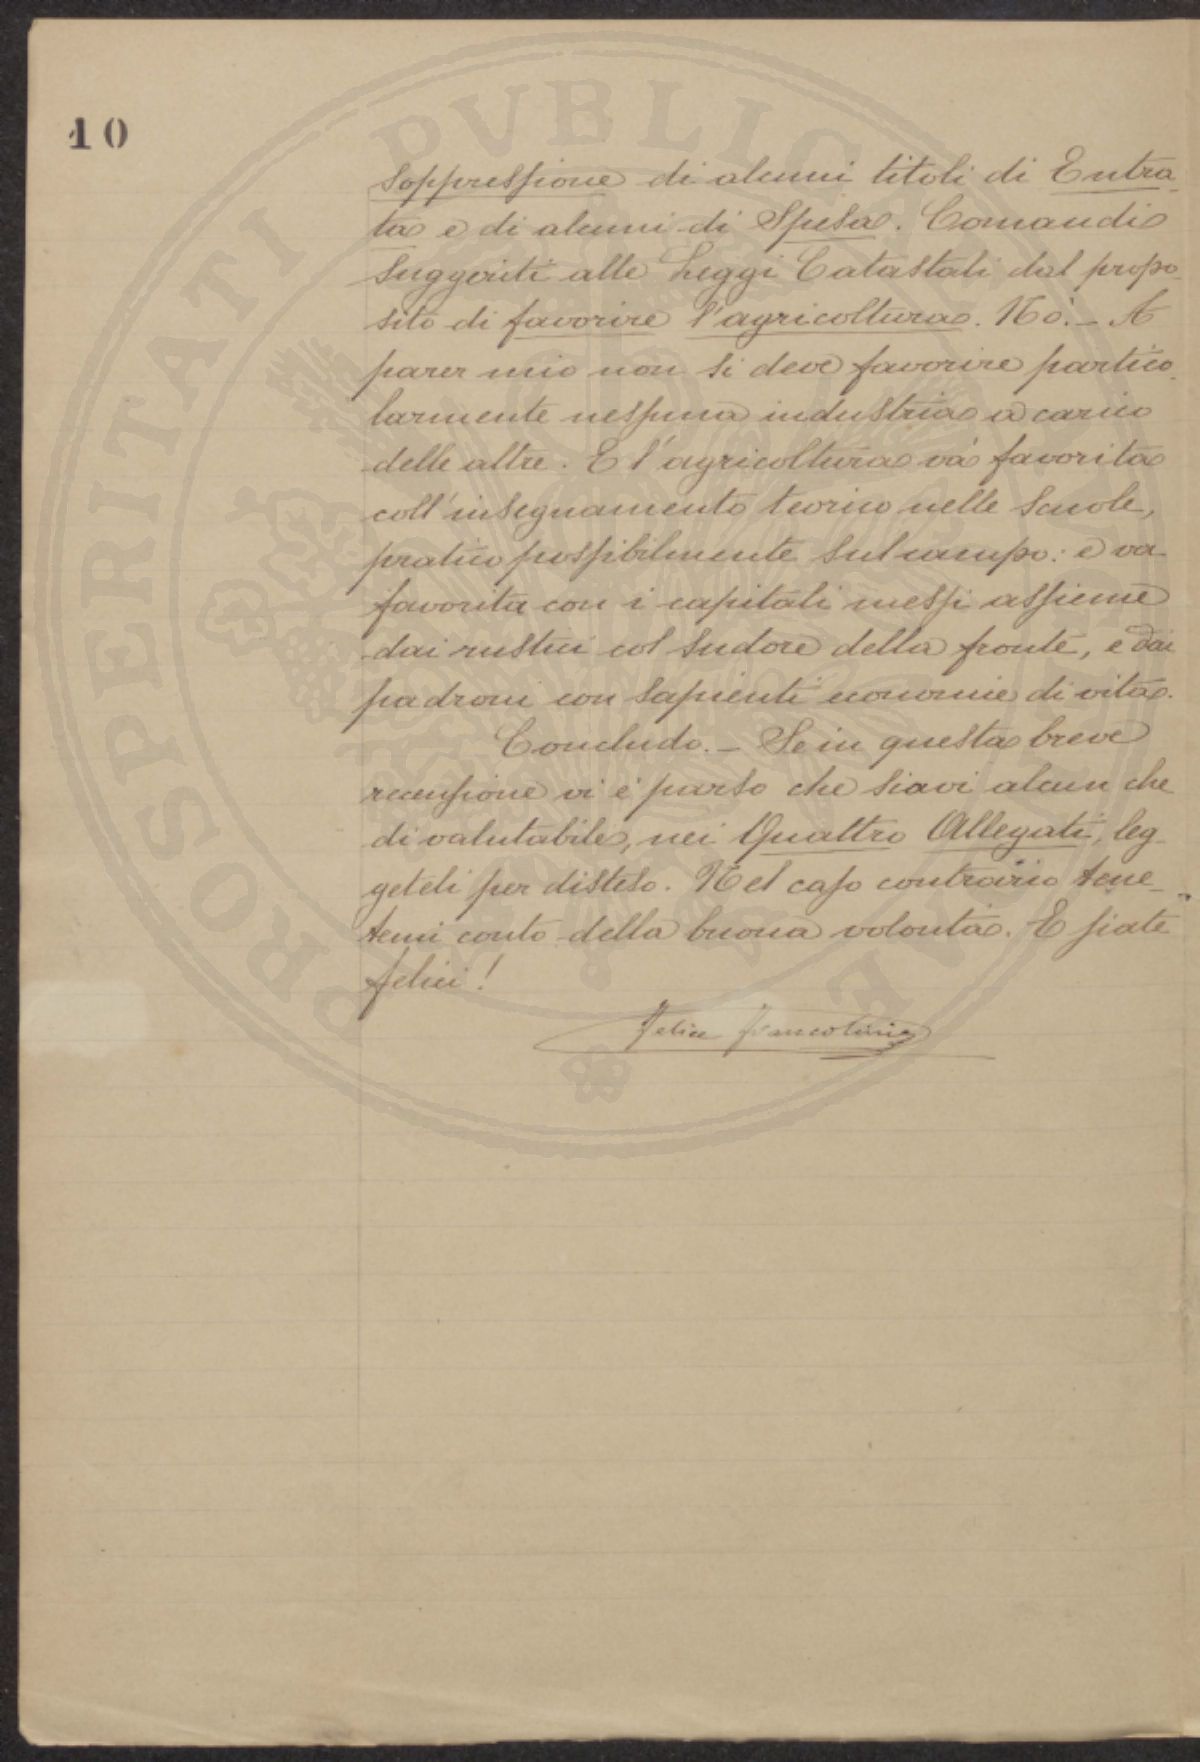 10
soppressione di alcuni titoli di Entra-
ta e di alcuni di Spesa. Comandi
suggeriti alle Leggi Catastali dal propo-
sito di favorire l'agricoltura. No. - A
parer mio non si deve favorire partico-
larmente nessuna industria a carico
delle altre. E l'agricoltura và favorita
coll'insegnamento teorico nelle Scuole,
pratico possibilmente sul campo: e va
favorita con i capitali messi assieme
dai rustici col sudore della fronte, e dai
padroni con sapienti economie di vita.
Concludo. - Se in questa breve
recensione vi è parso che siavi alcun che
di valutabile, nei Quattro Allegati, leg-
geteli per disteso. Nel caso contrario tene-
temi conto della buona volontà. E siate
felici!
Felice Francolini
PROSPERITATI PVBLICAE